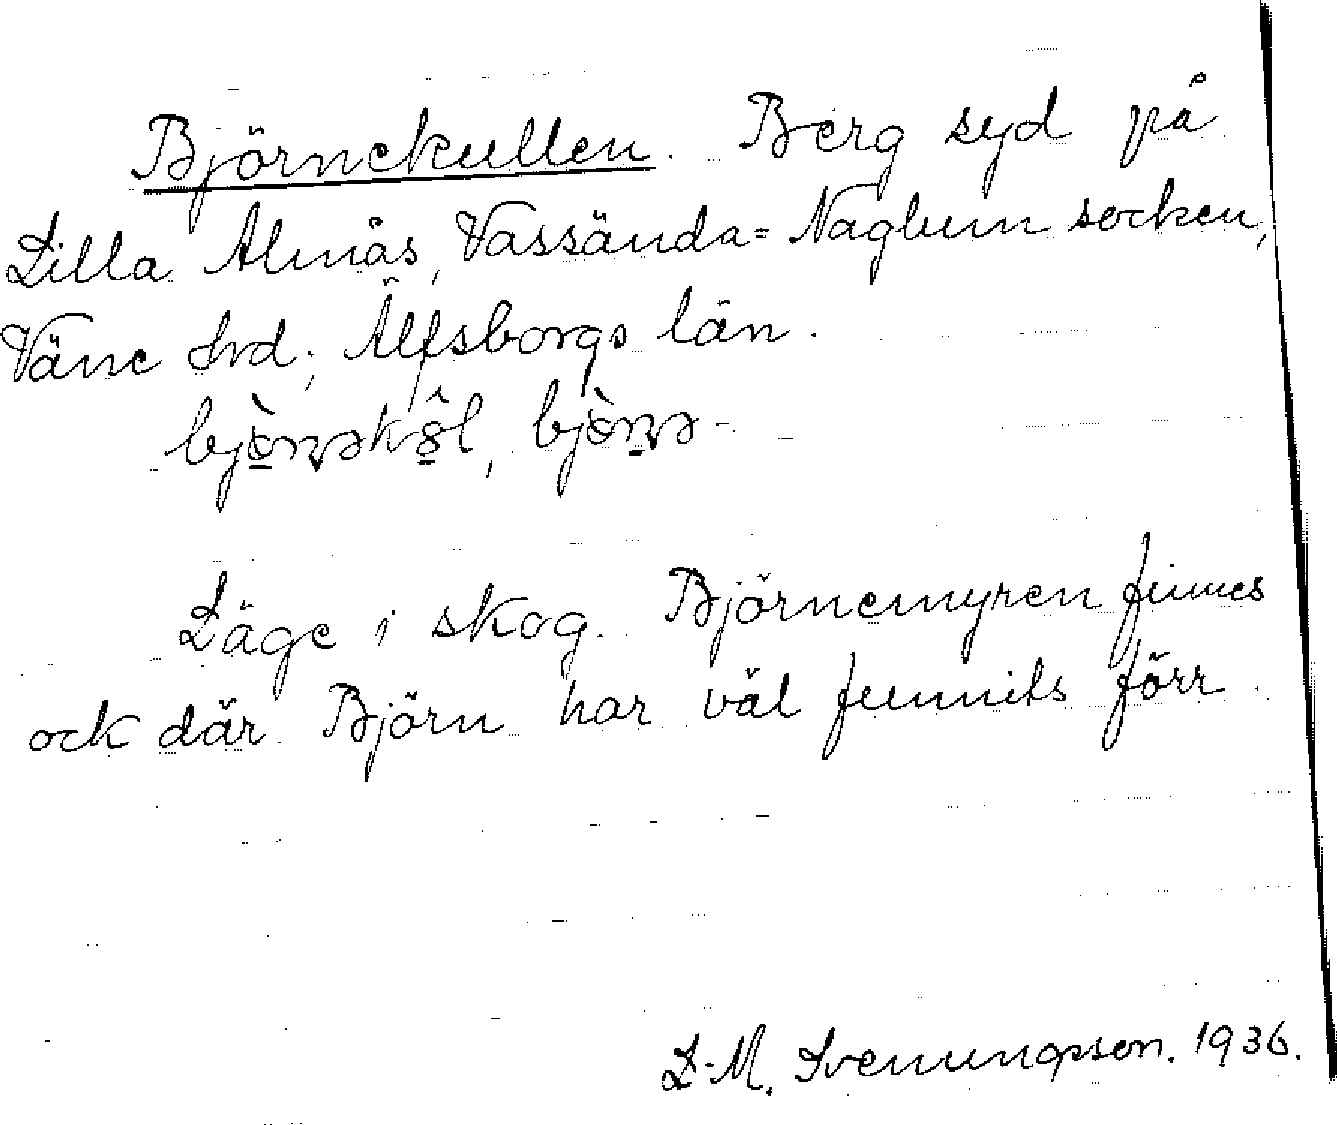 Björnekullen. Berg syd på
Lilla Almås, Vassända-Naglum socken,
Väne hrd; Älfsborgs län.
bjö̀ṇəkôl, bjö̀ṇə-
Läge i skog. Björnemyren finnes
ock där. Björn har väl funnits förr.
L-M. Svenungsson. 1936.